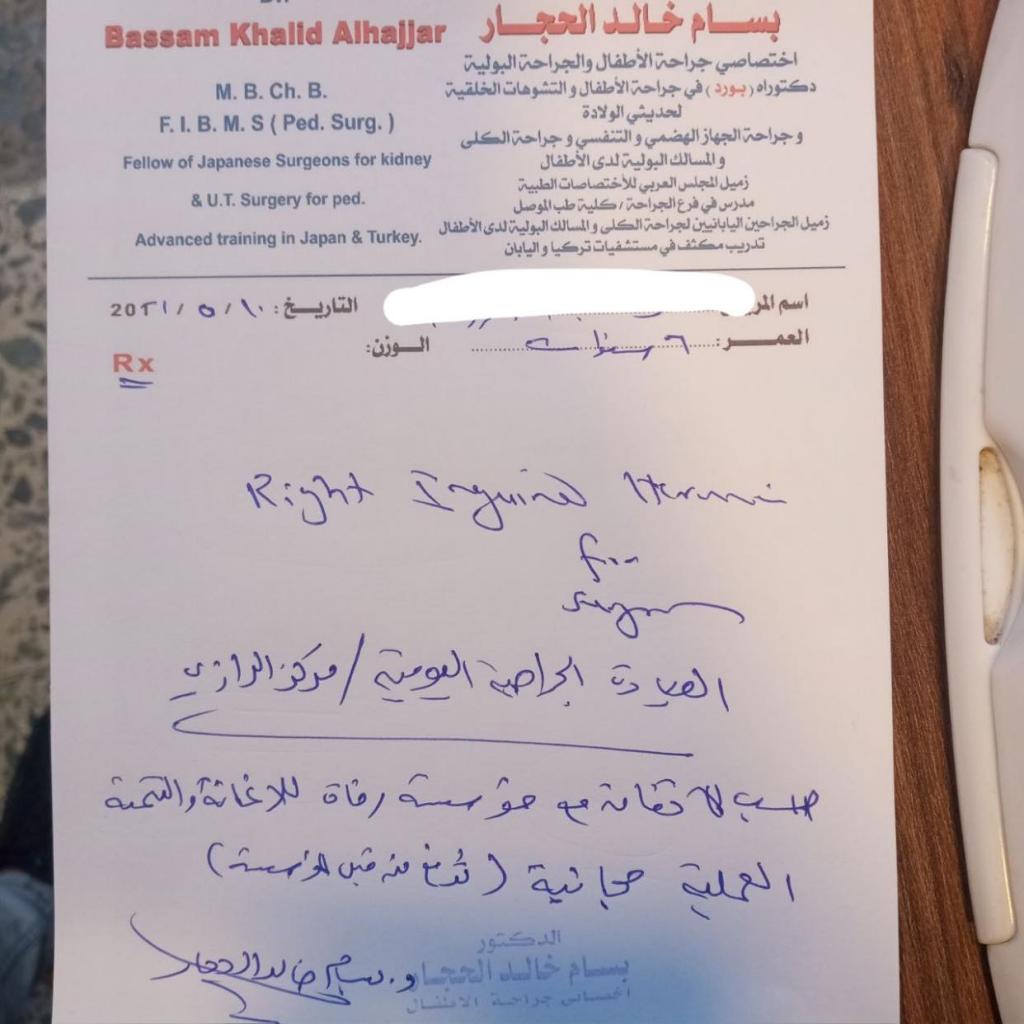 Bassam Khalid Alhajjar
M. B. Ch. B.
F. I. B. M. S ( Ped. Surg. )
Fellow of Japanese Surgeons for kidney
& U.T. Surgery for ped.
Advanced training in Japan & Turkey.
بسام خالد الحجار
اختصاصي جراحة الأطفال والجراحة البولية
دكتوراه (بورد) في جراحة الأطفال و التشوهات الخلقية
لحديثي الولادة
و جراحة الجهاز الهضمي و التنفسي و جراحة الكلى
و المسالك البولية لدى الأطفال
زميل المجلس العربي للأختصاصات الطبية
مدرس في فرع الجراحة / كلية طب الموصل
زميل الجراحين اليابانيين لجراحة الكلى و المسالك البولية لدى الأطفال
تدريب مكثف في مستشفيات تركيا و اليابان
اسم المريض
التاريخ: ١٠ / ٥ / 20٢١
العمر: ٦ سنوات الوزن:
Rx
Right Inguinal Hernia
for
Surgery
العيادة الجراحية اليومية / مركز الرازي
حسب الاتفاق مع مؤسسة للاغاثة والتنمية
العملية مجانية (تدفع من قبل المؤسسة)
د. بسام خالد الحجار
الدكتور
بسام خالد الحجار
اخصائي جراحة الاطفال